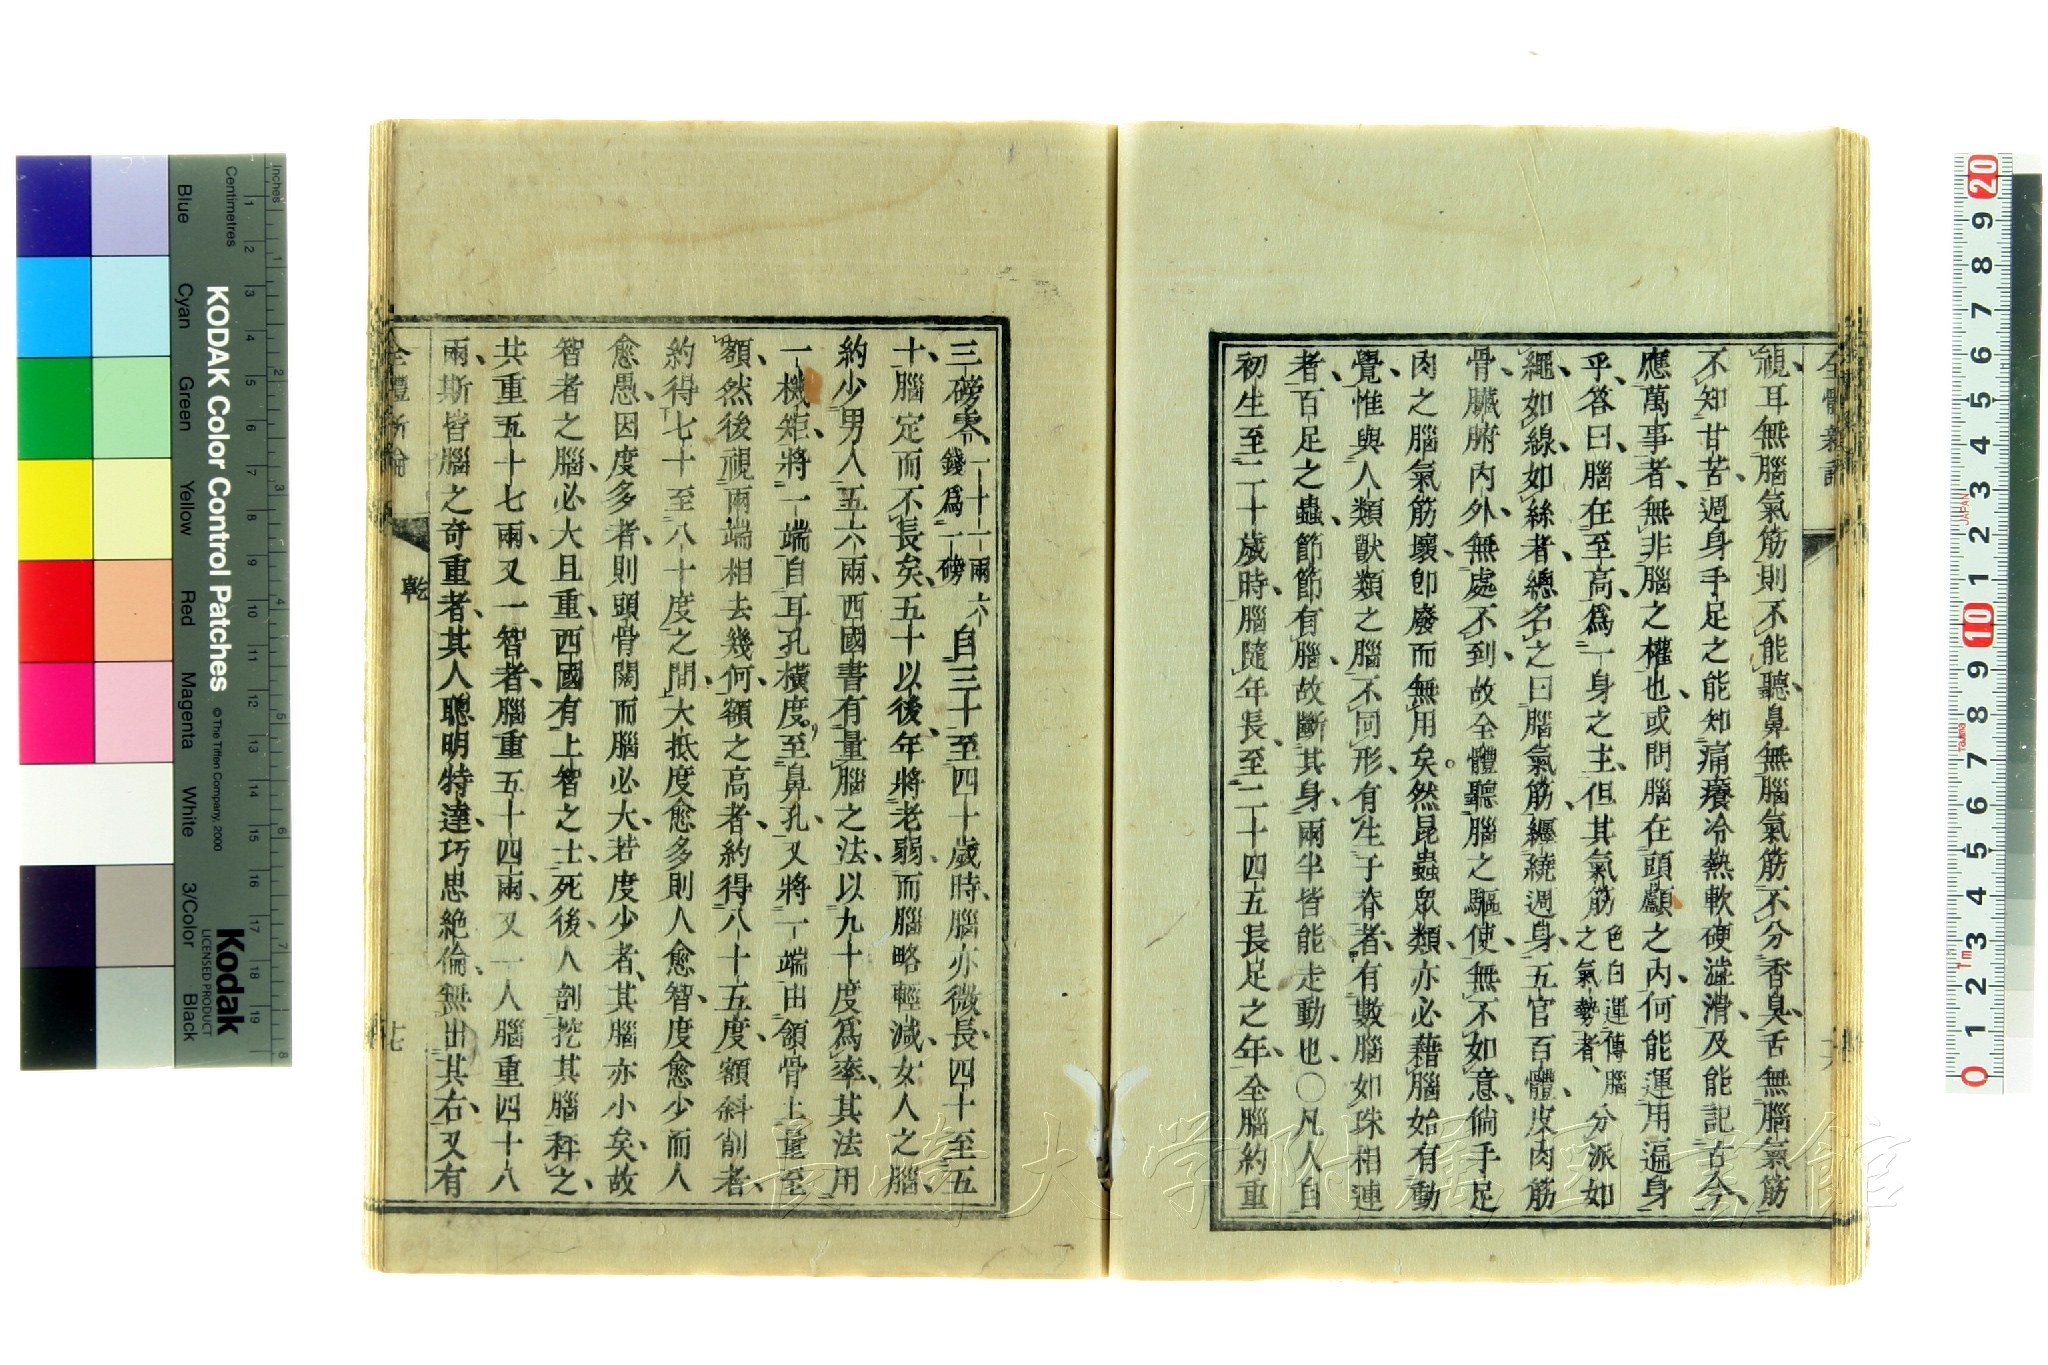 全體新論
視、耳無腦氣筋則不能聽、鼻無腦氣筋不分香臭、舌無腦氣筋
不知甘苦、週身手足之能知痛癢冷熱軟硬澁滑、及能記古今、
應萬事者、無非腦之權也、或問腦在頭顱之內何能運用遍身
乎、答曰、腦在至高、爲一身之主、但其氣筋色白運傳腦之氣勢者、分派如
繩如線如絲者、總名之曰腦氣筋、纏繞週身、五官百體、皮肉筋
骨、臟腑內外、無處不到、故全體聽腦之驅使、無不如意、倘手足
肉之腦氣筋壞、卽廢而無用矣。然昆蟲眾類、亦必藉腦始有動
覺、惟與人類獸類之腦不同形、有生子脊者、有數腦如珠相連
者、百足之蟲、節節有腦、故斷其身、兩半皆能走動也、〇凡人自
初生至二十歲時、腦隨年長、至二十四五長足之年、全腦約重
三磅零、一十一兩六錢爲一磅自三十至四十歲時、腦亦微長、四十至五
十、腦定而不長矣、五十以後、年將老弱而腦略輕減、女人之腦、
約少男人五六兩、西國書有量腦之法、以九十度爲率、其法用
一機矩、將一端自耳孔橫度至鼻孔、又將一端由頷骨上量至
額、然後視兩端相去幾何、額之高者、約得八十五度、額斜削者、
約得七十至八十度之間、大抵度愈多則人愈智、度愈少而人
愈愚、因度多者、則頭骨闊而腦必大、若度少者、其腦亦小矣、故
智者之腦、必大且重、西國有上智之士、死後、人剖挖其腦秤之、
共重五十七兩、又一智者、腦重五十四兩、又一人腦重四十八
兩、斯皆腦之奇重者、其人聰明特達、巧思絶倫、無出其右、又有
全體新論
乾
十七
長崎大学附属図書館
KODAK Color Control Patches
© The Tiffen Company, 2000
Kodak
LICENSED PRODUCT
Inches
Centimetres
Blue
Cyan
Green
Yellow
Red
Magenta
White
3/Color
Black
1 2 3 4 5 6 7 8 9 10 11 12 13 14 15 16 17 18 19
1 2 3 4 5 6 7 8
20 9 8 7 6 5 4 3 2 1 10 9 8 7 6 5 4 3 2 1 0
JAPAN
Tajima
1m